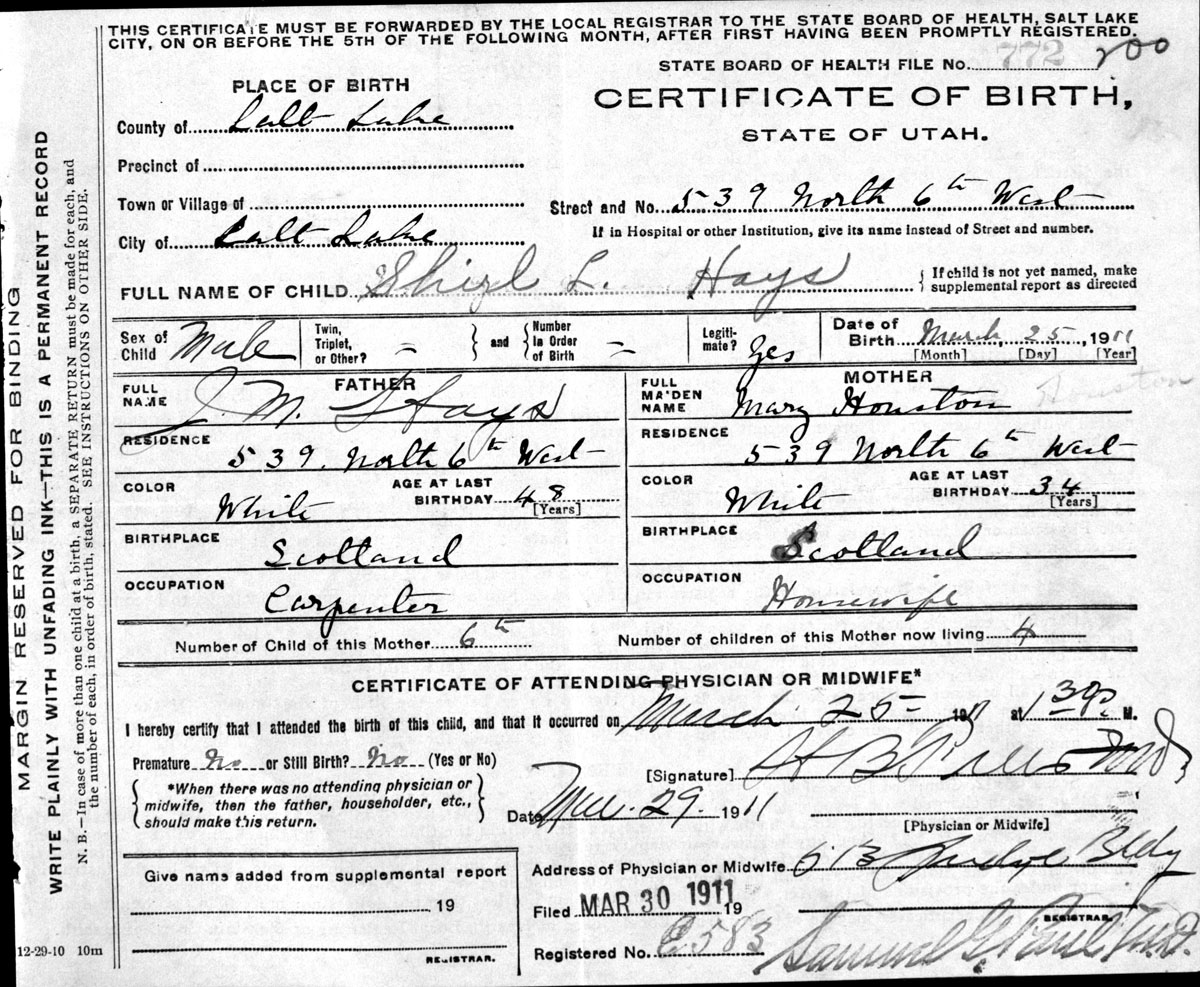 THIS CERTIFICATE MUST BE FORWARDED BY THE LOCAL REGISTRAR TO THE STATE BOARD OF HEALTH, SALT LAKE
CITY, ON OR BEFORE THE 5TH OF THE FOLLOWING MONTH, AFTER FIRST HAVING BEEN PROMPTLY REGISTERED.
STATE BOARD OF HEALTH FILE No. 772 200
PLACE OF BIRTH
CERTIFICATE OF BIRTH,
STATE OF UTAH.
County of Salt Lake
Precinct of
Town or Village of
Street and No. 539 North 6th West
City of Salt Lake
If in Hospital or other Institution, give its name instead of Street and number.
FULL NAME OF CHILD L. Hays
{ If child is not yet named, make
supplemental report as directed
Sex of Child Male
Twin, Triplet, or Other? –
} and {
Number in Order of Birth –
Legiti- mate? Yes
Date of Birth March 25, 1911
[Month] [Day] [Year]
FATHER
FULL NAME J. M. Hays
MOTHER
FULL MAIDEN NAME Mary Houston
Houston
RESIDENCE
539 North 6th West
RESIDENCE
539 North 6th West
COLOR White
AGE AT LAST BIRTHDAY 48
[Years]
COLOR White
AGE AT LAST BIRTHDAY 34
[Years]
BIRTHPLACE
Scotland
BIRTHPLACE
Scotland
OCCUPATION
Carpenter
OCCUPATION
Housewife
Number of Child of this Mother 6th
Number of children of this Mother now living 4
CERTIFICATE OF ATTENDING PHYSICIAN OR MIDWIFE*
I hereby certify that I attended the birth of this child, and that it occurred on March 25 1911 at 1 30 P. M.
Premature No or Still Birth? No (Yes or No)
[Signature] H B M.D.
{ *When there was no attending physician or
midwife, then the father, householder, etc.,
should make this return. }
Date Mar. 29. 1911
[Physician or Midwife]
Give name added from supplemental report
19
REGISTRAR.
Address of Physician or Midwife Judge Bldg
Filed MAR 30 1911 19
REGISTRAR.
Registered No. 583
Samuel G. M.D.
12-29-10 10m
MARGIN RESERVED FOR BINDING
WRITE PLAINLY WITH UNFADING INK—THIS IS A PERMANENT RECORD
N. B.—In case of more than one child at a birth, a SEPARATE RETURN must be made for each, and
the number of each, in order of birth, stated. SEE INSTRUCTIONS ON OTHER SIDE.